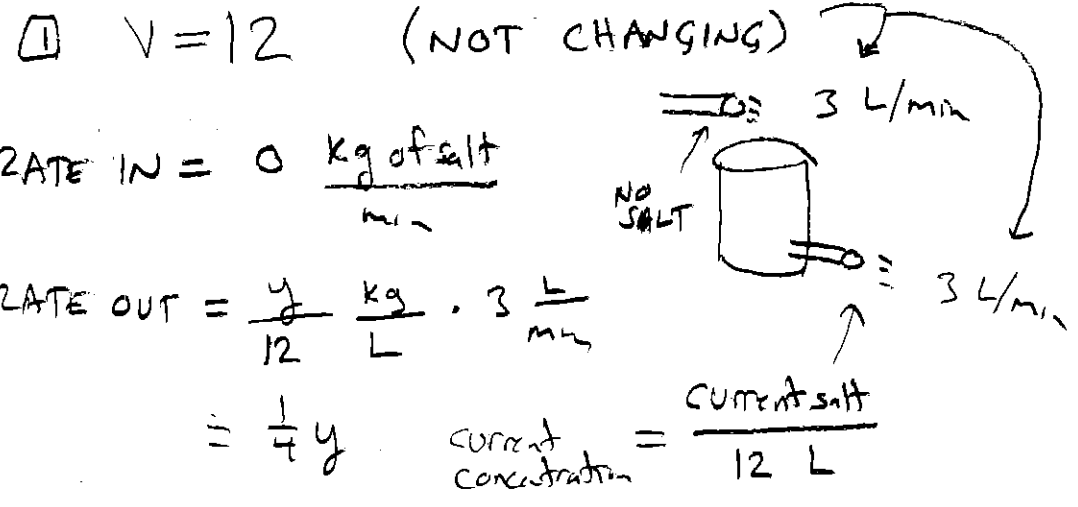 1 V = 12 (NOT CHANGING)
3 L/min
RATE IN = 0 kg of salt / min
NO SALT
RATE OUT = y/12 kg/L · 3 L/min
3 L/min
= 1/4 y
current concentration = current salt / 12 L